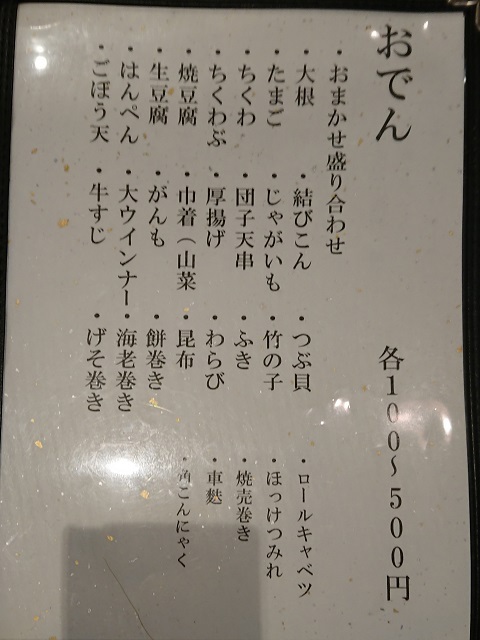 おでん 各100～500円
・おまかせ盛り合わせ
・大根 ・結びこん ・つぶ貝 ・ロールキャベツ
・たまご ・じゃがいも ・竹の子 ・ほっけつみれ
・ちくわ ・団子天串 ・ふき ・焼売巻き
・ちくわぶ ・厚揚げ ・わらび ・車麩
・焼豆腐 ・巾着(山菜 ・昆布 ・角こんにゃく
・生豆腐 ・がんも ・餅巻き
・はんぺん ・大ウインナー ・海老巻き
・ごぼう天 ・牛すじ ・げそ巻き